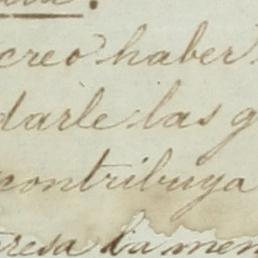 creo haber
darle las g
contribuya
tresa la men